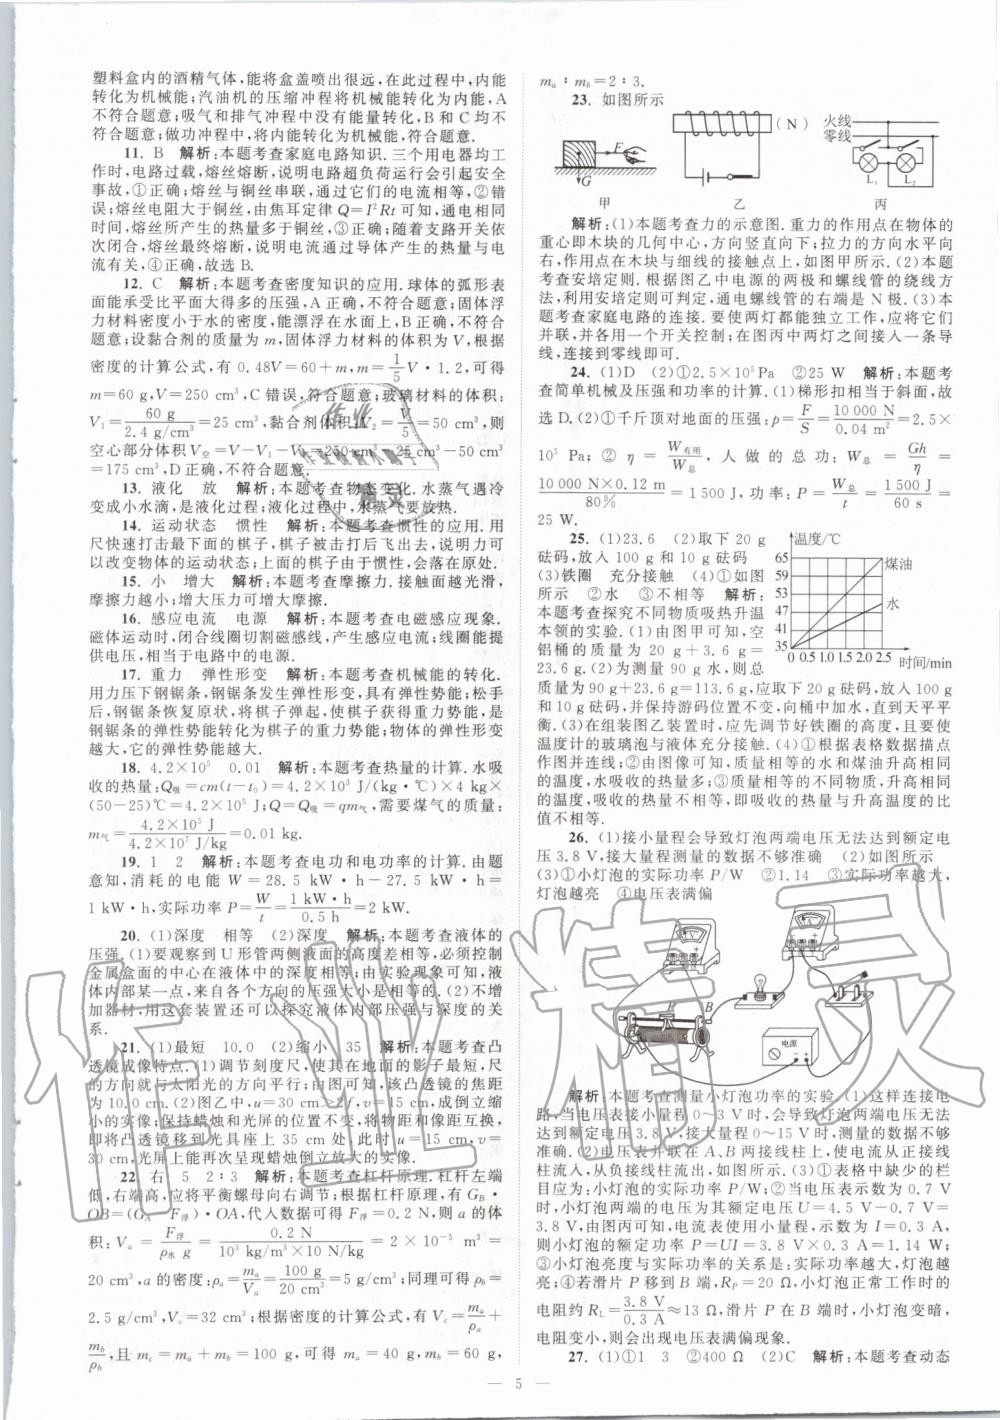 塑料盒内的酒精气体,能将盒盖喷出很远,在此过程中,内能
转化为机械能;汽油机的压缩冲程将机械能转化为内能,A
不符合题意;吸气和排气冲程中没有能量转化,B 和 C 均不
符合题意;做功冲程中,将内能转化为机械能,符合题意.
11. B 解析:本题考查家庭电路知识.三个用电器均工
作时,熔丝熔断,说明电路超负荷运行会引起安全
事故,①正确;熔丝与铜丝串联,通过它们的电流相等,②错
误;熔丝电阻大于铜丝,由焦耳定律 Q=I²Rt 可知,通电相同
时间,熔丝所产生的热量多于铜丝,③正确;随着支路开关依
次闭合,熔丝最终熔断,说明电流通过导体产生的热量与电
流有关,④正确,故选 B.
12. C 解析:本题考查密度知识的应用.球体的弧形表
面能承受比平面大得多的压强,A 正确,不符合题意;固体浮
力材料密度小于水的密度,能漂浮在水面上,B 正确,不符合
题意;设黏合剂的质量为 m,固体浮力材料的体积为 V,根据
密度的计算公式,有 0.48V=60 g+m,m=1/5 V·1.2,可得
m=60 g,V=250 cm³,C 错误,符合题意;玻璃材料的体积:
V₁=60 g/2.4 g/cm³=25 cm³,黏合剂体积:V₂=V/5=50 cm³,则
空心部分体积 V空=V-V₁-V₂=250 cm³-25 cm³-50 cm³
=175 cm³,D 正确,不符合题意.
13. 液化 放 解析:本题考查物态变化.水蒸气遇冷
变成小水滴,是液化过程;液化过程中,水蒸气要放热.
14. 运动状态 惯性 解析:本题考查惯性的应用.用
尺快速打击最下面的棋子,棋子被打击后飞出去,说明力可
以改变物体的运动状态;上面的棋子由于惯性,会落在原处.
15. 小 增大 解析:本题考查摩擦力.接触面越光滑,
摩擦力越小;增大压力可增大摩擦.
16. 感应电流 电源 解析:本题考查电磁感应现象.
磁体运动时,闭合线圈切割磁感线,产生感应电流;线圈能提
供电压,相当于电路中的电源.
17. 重力 弹性形变 解析:本题考查机械能的转化.
用力压下钢锯条,钢锯条发生弹性形变,具有弹性势能;松手
后,钢锯条恢复原状,将棋子弹起,使棋子获得重力势能,是
钢锯条的弹性势能转化为棋子的重力势能;物体的弹性形变
越大,它的弹性势能越大.
18. 4.2×10⁵ 0.01 解析:本题考查热量的计算.水吸
收的热量:Q吸=cm(t-t₀)=4.2×10³ J/(kg·℃)×4 kg×
(50-25)℃=4.2×10⁵ J;Q=Q吸=qm气,需要煤气的质量:
m气=4.2×10⁵ J/4.2×10⁷ J/kg=0.01 kg.
19. 1 2 解析:本题考查电功和电功率的计算.由题
意知,消耗的电能 W=28.5 kW·h-27.5 kW·h=
1 kW·h,实际功率 P=W/t=1 kW·h/0.5 h=2 kW.
20. (1)深度 相等 (2)深度 解析:本题考查液体的
压强.(1)要观察到 U 形管两侧液面的高度差相等,必须控制
金属盒面的中心在液体中的深度相等;由实验现象可知,液
体内部某一点,来自各个方向的压强大小是相等的.(2)不增
加器材,用这套装置还可以探究液体内部压强与深度的关
系.
21. (1)最短 10.0 (2)缩小 35 解析:本题考查凸
透镜成像特点.(1)调节刻度尺,使其在地面的影子最短,尺
的方向就与太阳光的方向平行;由图可知,该凸透镜的焦距
为 10.0 cm.(2)图中,u=30 cm>2f,v=15 cm,成倒立缩小
的实像,保持蜡烛和光屏的位置不变,将物距和像距互换,
即将凸透镜移到光具座上 35 cm 处,此时 u=15 cm,v=
30 cm,光屏上能再次呈现蜡烛倒立放大的实像.
22. 右 5 2∶3 解析:本题考查杠杆原理.杠杆左端
低,右端高,应将平衡螺母向右调节;根据杠杆原理,有 G_B·
OB=(G_A-F浮)·OA,代入数据可得 F浮=0.2 N,则 a 的体
积:Vₐ=F浮/ρ水 g=0.2 N/10³ kg/m³×10 N/kg=2×10⁻⁵ m³=
20 cm³,a 的密度:ρₐ=mₐ/Vₐ=100 g/20 cm³=5 g/cm³;同理可得 ρ_b=
2.5 g/cm³,V_c=32 cm³;根据密度的计算公式,有 V_c=mₐ/ρₐ+
m_b/ρ_b,且 m_c=mₐ+m_b=100 g,可得 mₐ=40 g,m_b=60 g,
mₐ∶m_b=2∶3.
23. 如图所示
F
G
甲
(N)
乙
火线
零线
L₁ L₂
丙
解析:(1)本题考查力的示意图.重力的作用点在物体的
重心即木块的几何中心,方向竖直向下;拉力的方向水平向
右,作用点在木块与细线的接触点上,如图甲所示.(2)本题
考查安培定则.根据图乙中电源的两极和螺线管的绕线方
法,利用安培定则可判定,通电螺线管的右端是 N 极.(3)本
题考查家庭电路的连接.要使两灯都能独立工作,应将它们
并联,并各用一个开关控制;在图丙中两灯之间接入一条导
线,连接到零线即可.
24. (1)D (2)①2.5×10⁵Pa ②25 W 解析:本题考
查简单机械及压强和功率的计算.(1)梯形扣相当于斜面,故
选 D.(2)①千斤顶对地面的压强:p=F/S=10 000 N/0.04 m²=2.5×
10⁵ Pa;②η=W有用/W总,人做的总功:W总=Gh/η=
10 000 N×0.12 m/80%=1 500 J,功率:P=W总/t=1 500 J/60 s=
25 W.
25. (1)23.6 (2)取下 20 g
砝码,放入 100 g 和 10 g 砝码
(3)铁圈 充分接触 (4)①如图
所示 ②水 ③不相等 解析:
本题考查探究不同物质吸热升温
本领的实验.(1)由图甲可知,空
铝桶的质量为 20 g+3.6 g=
23.6 g.(2)测量 90 g 水,则总
温度/℃
65
59
53
47
41
35
0 0.5 1.0 1.5 2.0 2.5 时间/min
煤油
水
质量为 90 g+23.6 g=113.6 g,应取下 20 g 砝码,放入 100 g
和 10 g 砝码,并保持游码位置不变,向桶中加水,直到天平平
衡.(3)在组装图乙装置时,应先调节好铁圈的高度,且要使
温度计的玻璃泡与液体充分接触.(4)①根据表格数据描点
作图并连线;②由图像可知,质量相等的水和煤油升高相同
的温度,水吸收的热量多;③质量相等的不同物质升高相同
的温度,吸收的热量不相等,即吸收的热量与升高温度的比
值不相等.
26. (1)接小量程会导致灯泡两端电压无法达到额定电
压 3.8 V,接大量程测量的数据不够准确 (2)如图所示
(3)①小灯泡的实际功率 P/W ②1.14 ③实际功率越大,
灯泡越亮 ④电压表满偏
P
B
电源
解析:本题考查测量小灯泡功率的实验.(1)这样连接电
路,当电压表接小量程 0~3 V 时,会导致灯泡两端电压无法
达到额定电压 3.8 V,接大量程 0~15 V 时,测量的数据不够
准确.(2)电压表并联在 A、B 两接线柱间,使电流从正接线
柱流入,从负接线柱流出,如图所示.(3)①表格中缺少的栏
目应为:小灯泡的实际功率 P/W;②当电压表示数为 0.7 V
时,小灯泡两端的电压为其额定电压 U=4.5 V-0.7 V=
3.8 V,由图丙可知,电流表使用小量程,示数为 I=0.3 A,
则小灯泡的额定功率 P=UI=3.8 V×0.3 A=1.14 W;
③小灯泡亮度与实际功率的关系是:实际功率越大,灯泡越
亮;④若滑片 P 移到 B 端,R_P=20 Ω,小灯泡正常工作时的
电阻约 R_L=3.8 V/0.3 A≈13 Ω,滑片 P 在 B 端,小灯泡变暗,
电阻变小,则会出现电压表满偏现象.
27. (1)①1 3 ②400 Ω (2)C 解析:本题考查动态
— 5 —
作业精灵